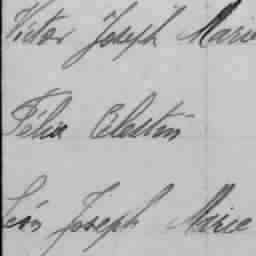 Victor Joseph Marie
Félix Célestin
Léon Joseph Marie